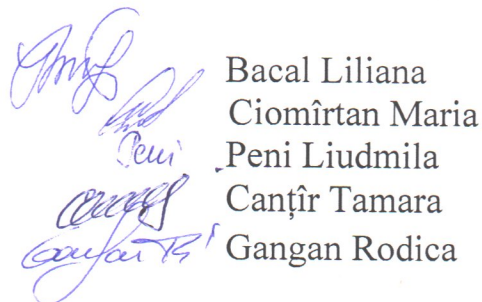 Bacal Liliana
Ciomîrtan Maria
Peni Peni Liudmila
Canțîr Tamara
Gangan R Gangan Rodica